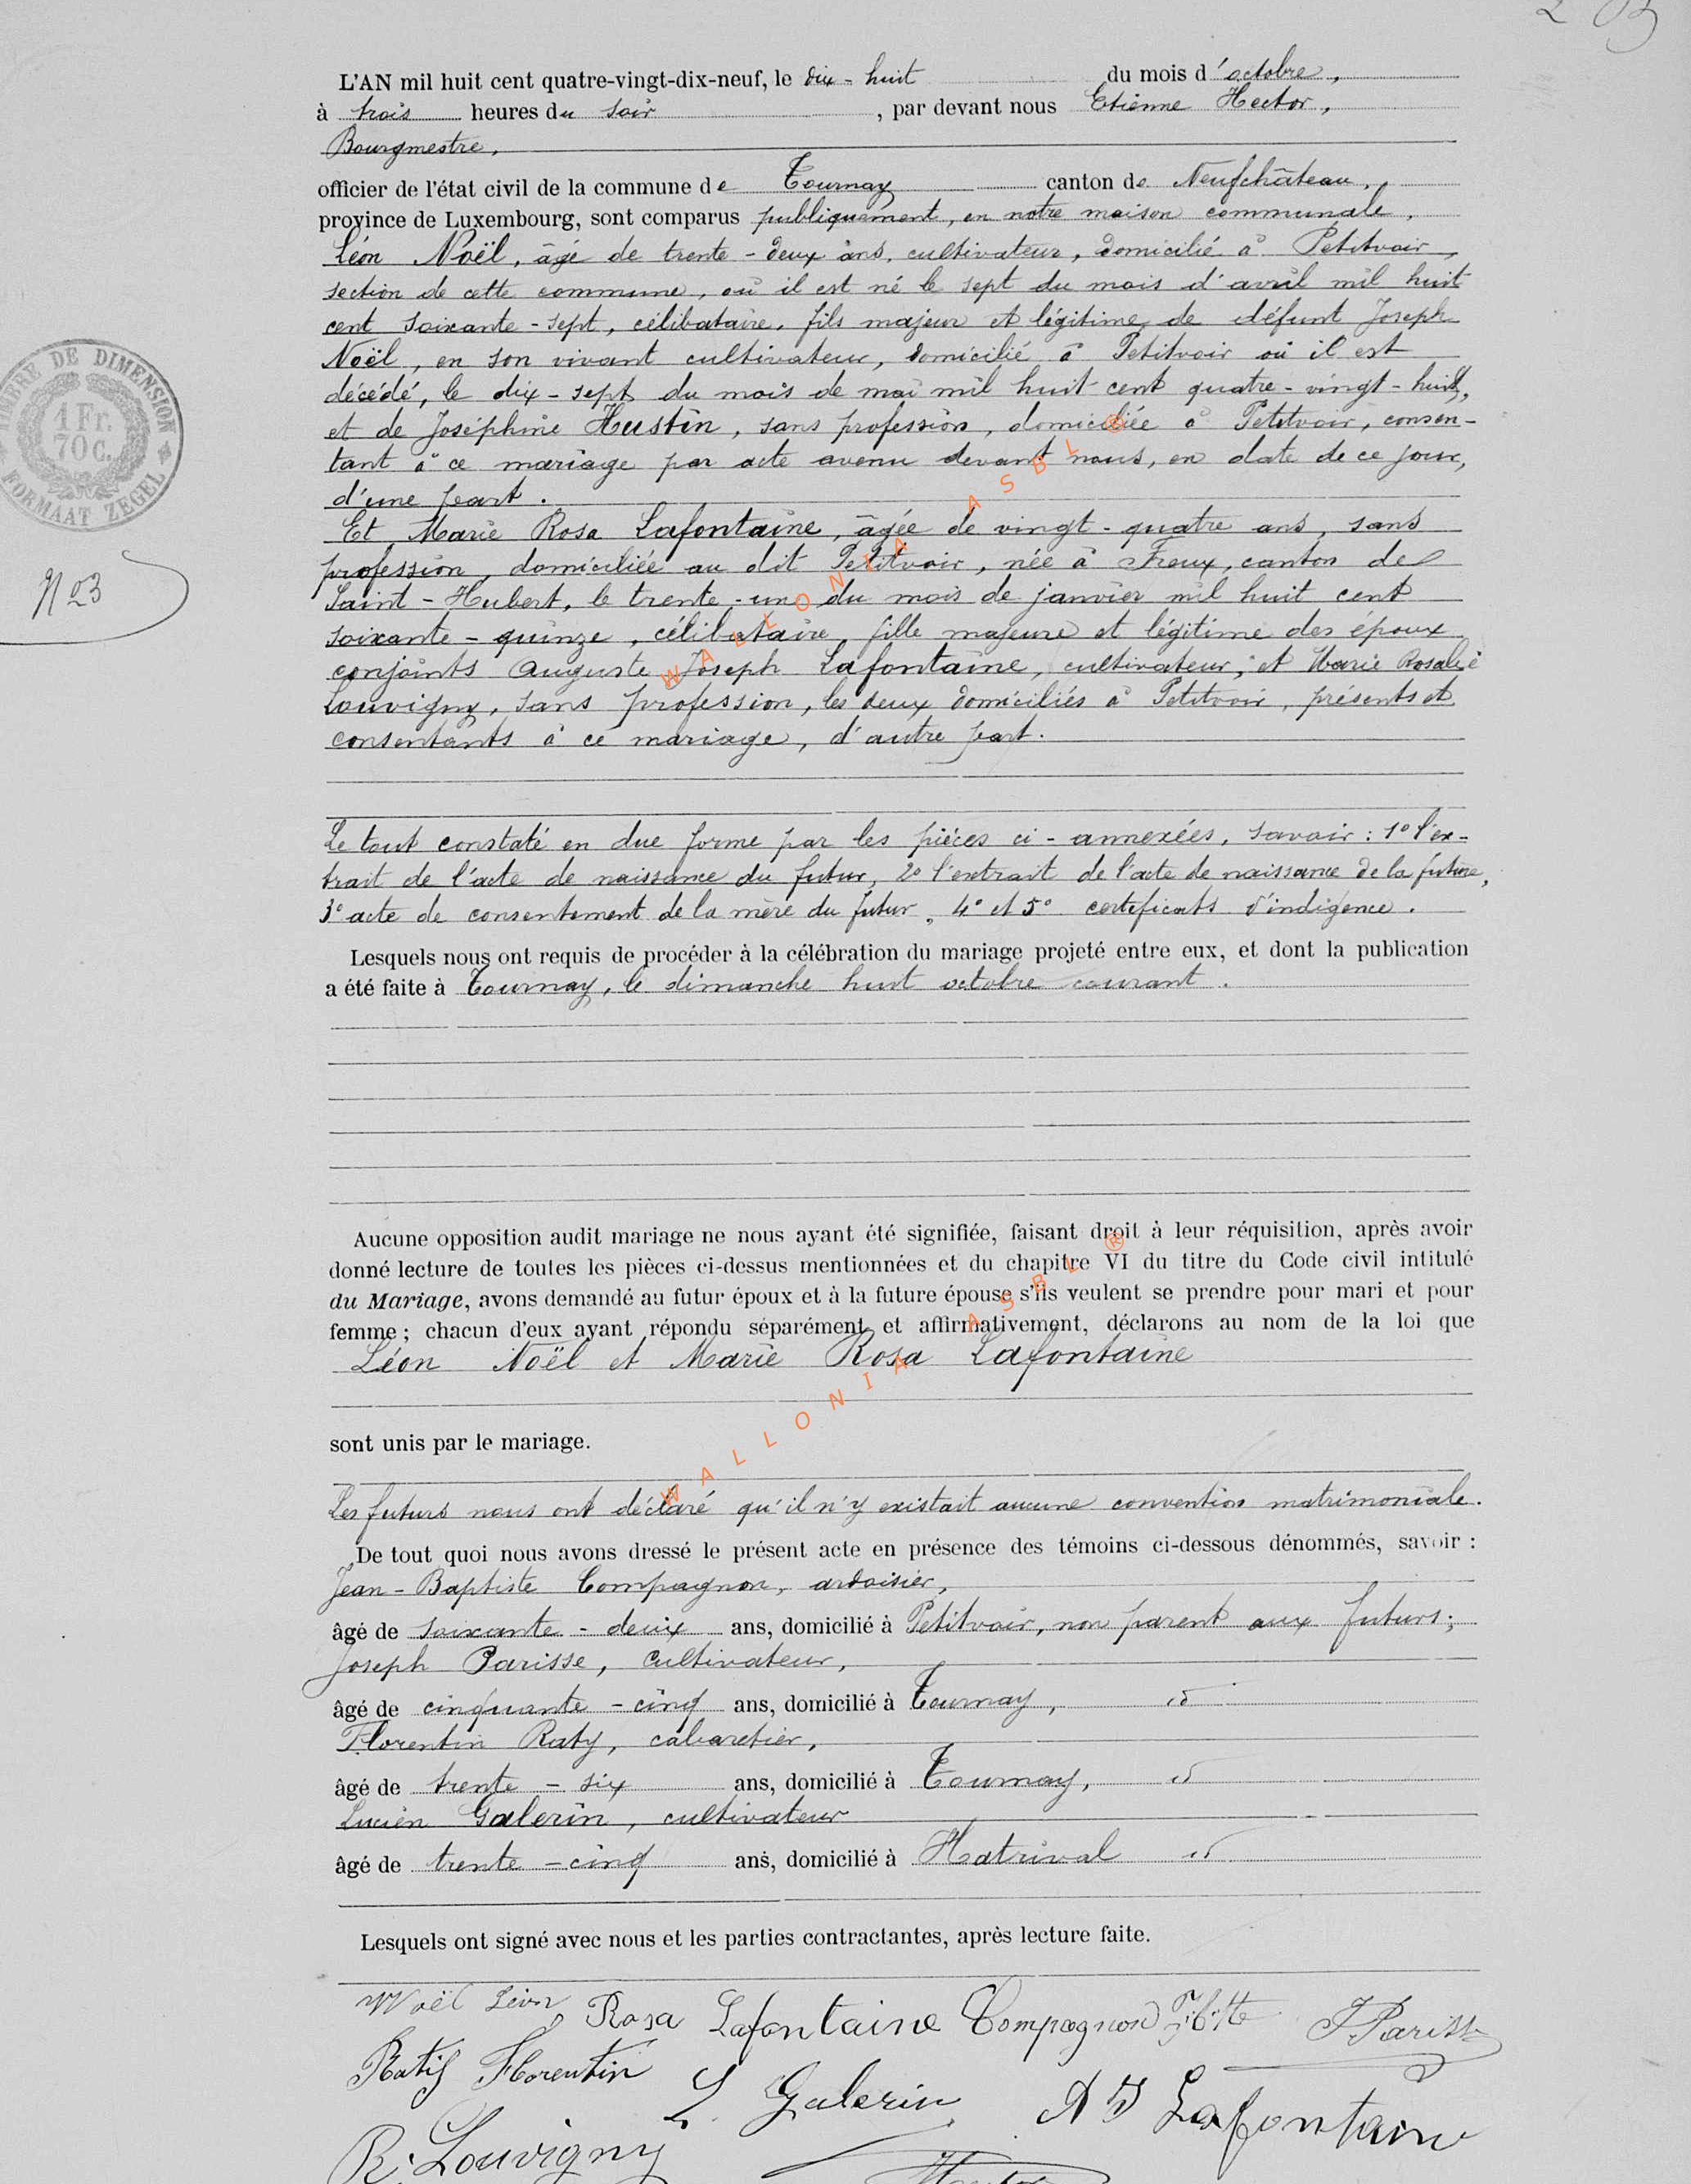 L'AN mil huit cent quatre-vingt-dix-neuf, le dix-huit du mois d'octobre,
à trois heures du soir, par devant nous Etienne Hector,
Bourgmestre,
officier de l'état civil de la commune de Tournay canton de Neufchâteau,
province de Luxembourg, sont comparus publiquement, en notre maison communale,
Léon Noël, âgé de trente-deux ans, cultivateur, domicilié à Petitvoir,
section de cette commune, où il est né le sept du mois d'avril mil huit
cent soixante-sept, célibataire, fils majeur et légitime de défunt Joseph
Noël, en son vivant cultivateur, domicilié à Petitvoir où il est
décédé, le dix-sept du mois de mai mil huit cent quatre-vingt-huit,
et de Joséphine Hustin, sans profession, domiciliée à Petitvoir, consen-
tant à ce mariage par acte avenu devant nous, en date de ce jour,
d'une part.
Et Marie Rosa Lafontaine, âgée de vingt-quatre ans, sans
profession, domiciliée au dit Petitvoir, née à Freux, canton de
Saint-Hubert, le trente-un du mois de janvier mil huit cent
soixante-quinze, célibataire, fille majeure et légitime des époux
conjoints Auguste Joseph Lafontaine, cultivateur, et Marie Rosalie
Louvigny, sans profession, les deux domiciliés à Petitvoir, présents et
consentants à ce mariage, d'autre part.
Le tout constaté en due forme par les pièces ci-annexées, savoir : 1° l'ex-
trait de l'acte de naissance du futur, 2° l'extrait de l'acte de naissance de la future,
3° acte de consentement de la mère du futur, 4° et 5° certeficats d'indigence.
Lesquels nous ont requis de procéder à la célébration du mariage projeté entre eux, et dont la publication
a été faite à Tournay, le dimanche huit octobre courant.
Aucune opposition audit mariage ne nous ayant été signifiée, faisant droit à leur réquisition, après avoir
donné lecture de toutes les pièces ci-dessus mentionnées et du chapitre VI du titre du Code civil intitulé
du Mariage, avons demandé au futur époux et à la future épouse s'ils veulent se prendre pour mari et pour
femme ; chacun d'eux ayant répondu séparément et affirmativement, déclarons au nom de la loi que
Léon Noël et Marie Rosa Lafontaine
sont unis par le mariage.
Les futurs nous ont déclaré qu'il n'y existait aucune convention matrimoniale.
De tout quoi nous avons dressé le présent acte en présence des témoins ci-dessous dénommés, savoir :
Jean-Baptiste Compagnon, ardoisier,
âgé de soixante-deux ans, domicilié à Petitvoir, non parent aux futurs;
Joseph Parisse, cultivateur,
âgé de cinquante-cinq ans, domicilié à Tournay, id
Florentin Raty, cabaretier,
âgé de trente-six ans, domicilié à Tournay, id
Lucien Galerin, cultivateur
âgé de trente-cinq ans, domicilié à Hatrival id
Lesquels ont signé avec nous et les parties contractantes, après lecture faite.
Noël Léon Rosa Lafontaine Compagnon J Parisse
Raty Florentin L. Galerin A J Lafontaine
R. Louvigny Hector
N° 23
TIMBRE DE DIMENSION
1 Fr.
70 c.
FORMAAT ZEGEL
WALLONIA ASBL ®
WALLONIA ASBL ®